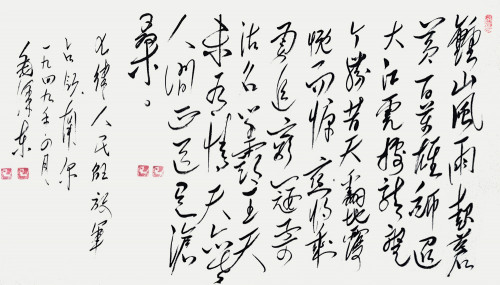 鍾山風雨起蒼
黃百萬雄師過
大江虎踞龍盤
今勝昔天翻地覆
慨而慷宜將剩
勇追窮寇不可
沽名學霸王天
若有情天亦老
人間正道是滄
桑
七律人民解放軍
占領南京
一九四九年四月
毛澤東